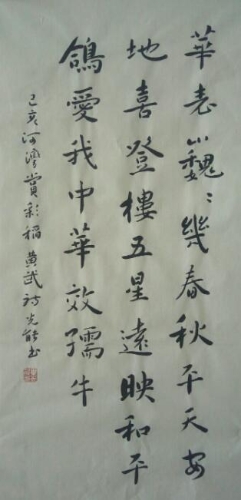 華表巍〻幾春秋平天安
地喜登樓五星遠映和平
鴿愛我中華效孺牛
己亥河灣賞彩稻黄武詩光能书